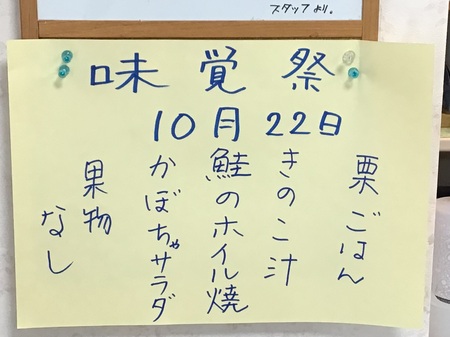 スタッフより。
味覚祭
10月22日
栗ごはん
きのこ汁
鮭のホイル焼
かぼちゃサラダ
果物
なし